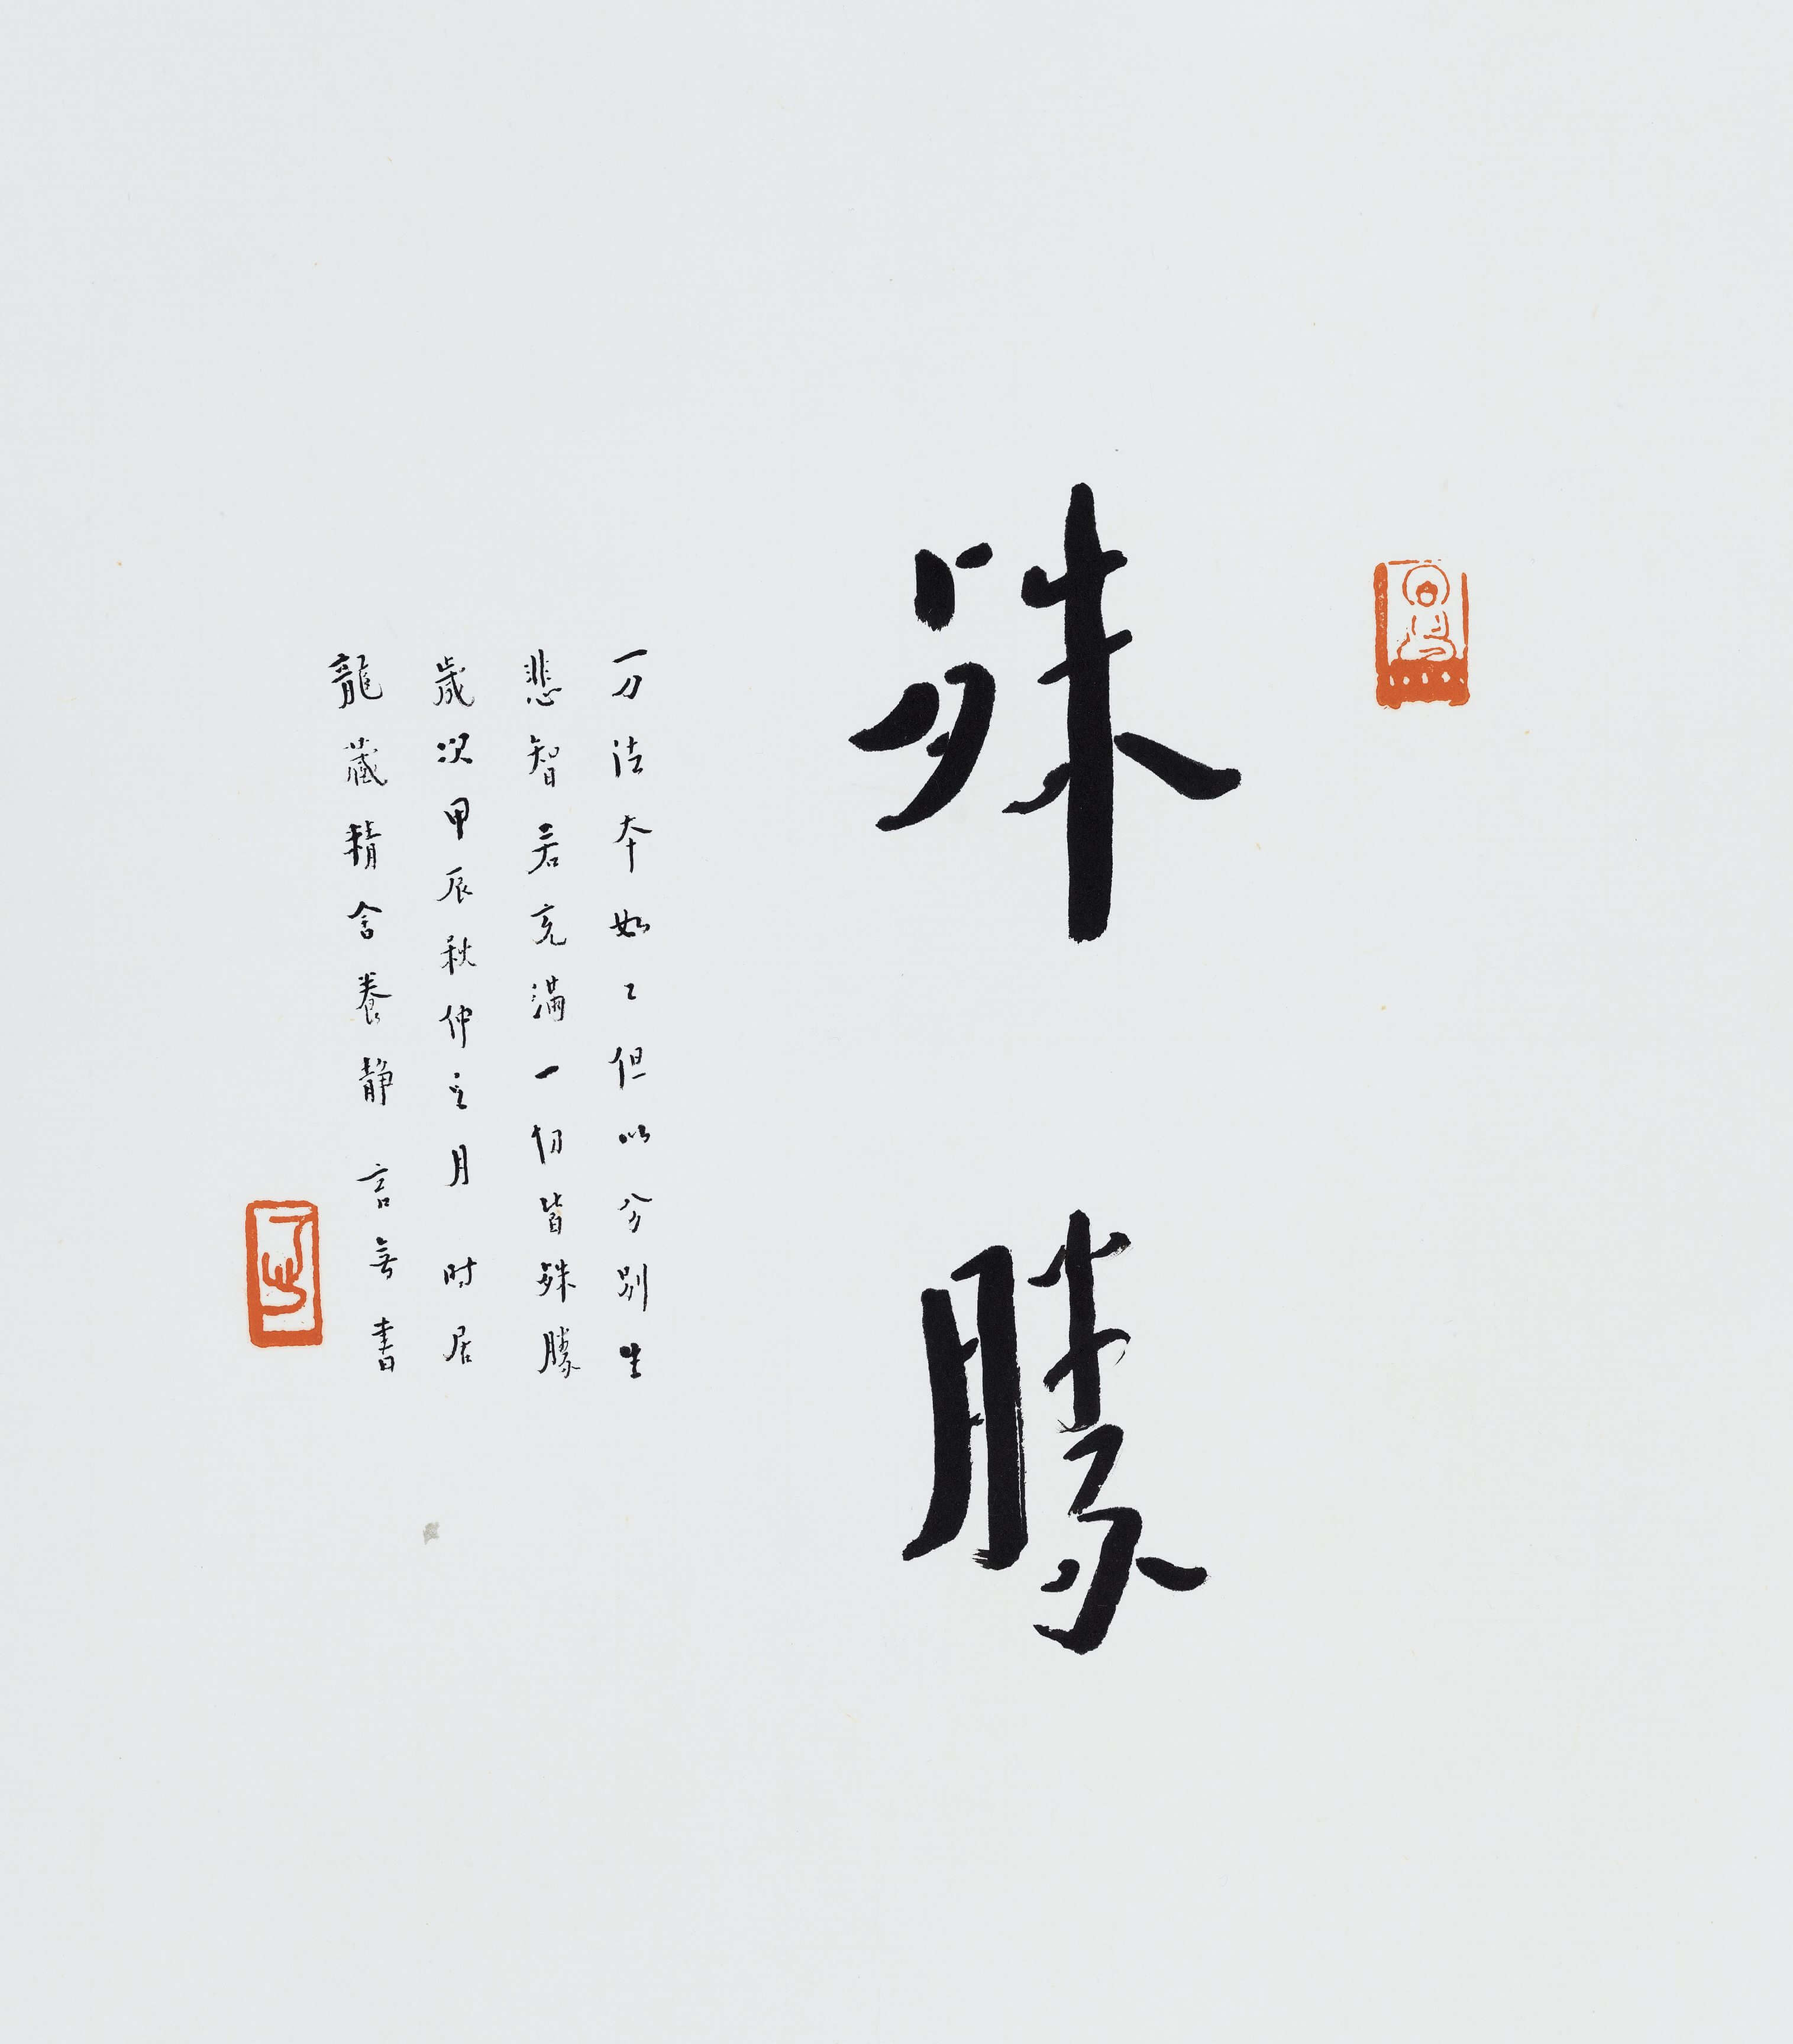 殊勝
万法本如々但以分别生
悲智若充滿一切皆殊勝
歲次甲辰秋仲之月时居
龍藏精舍養静言書